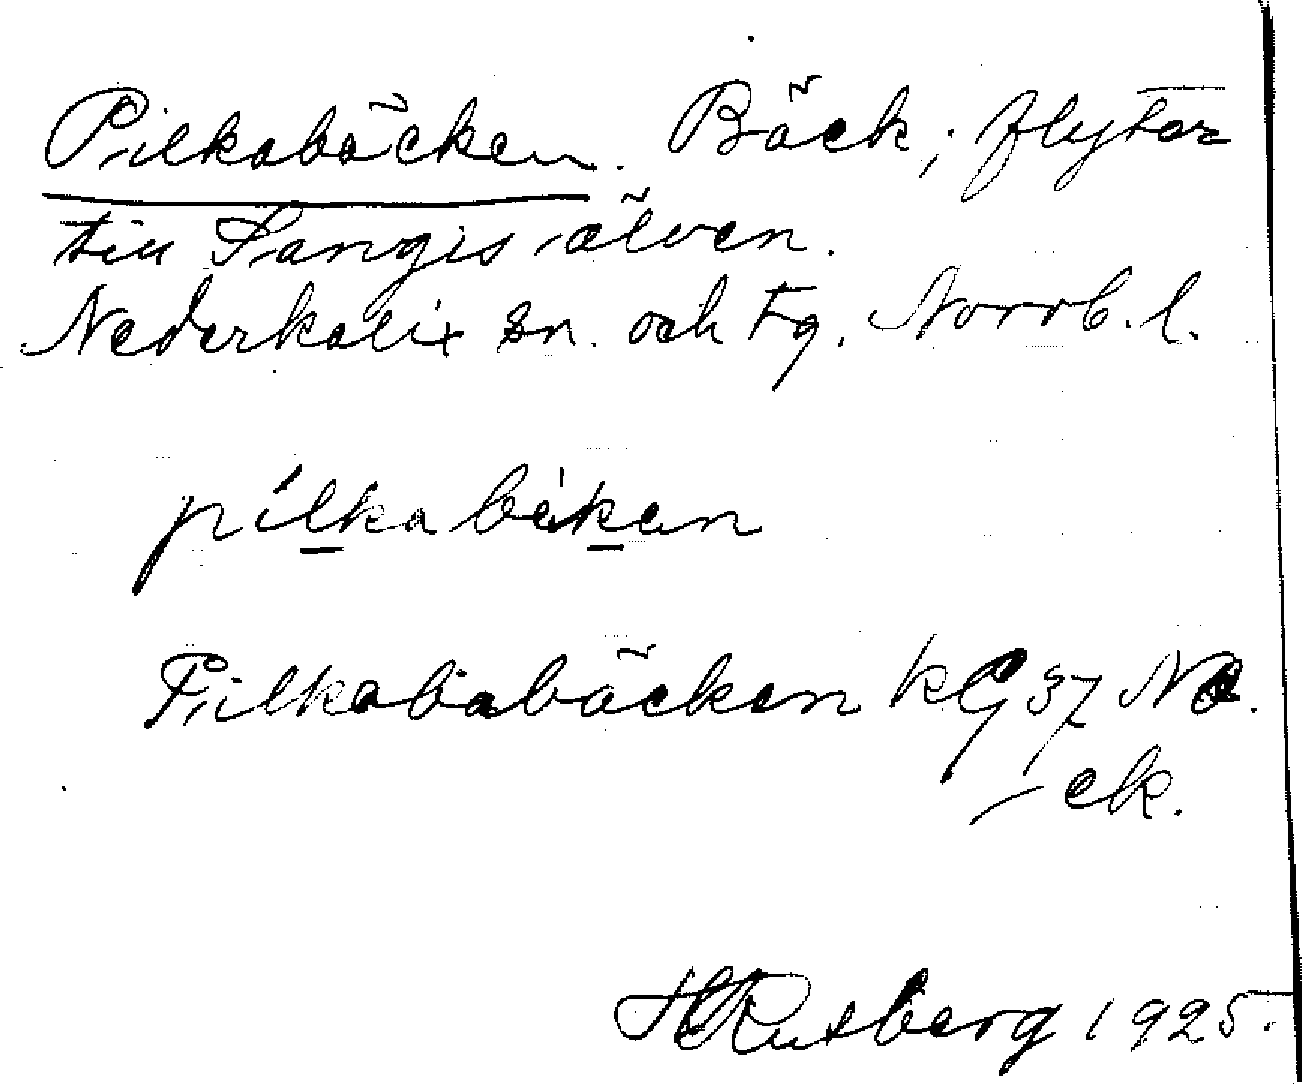 Pilkabäcken. Bäck; flyter
till Sangis älven.
Nederkalix sn. och tg. Norrb. l.
pilkabäkan
Pilkabäbäcken kG 37 NO.
ek.
Rutberg 1925.